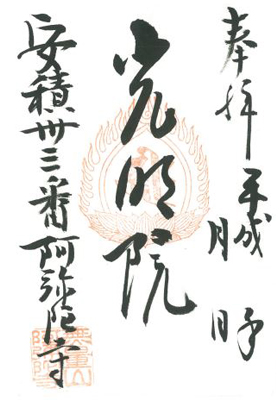 奉拝 平成 月 日
光明院
安積卅三番 阿弥陀寺